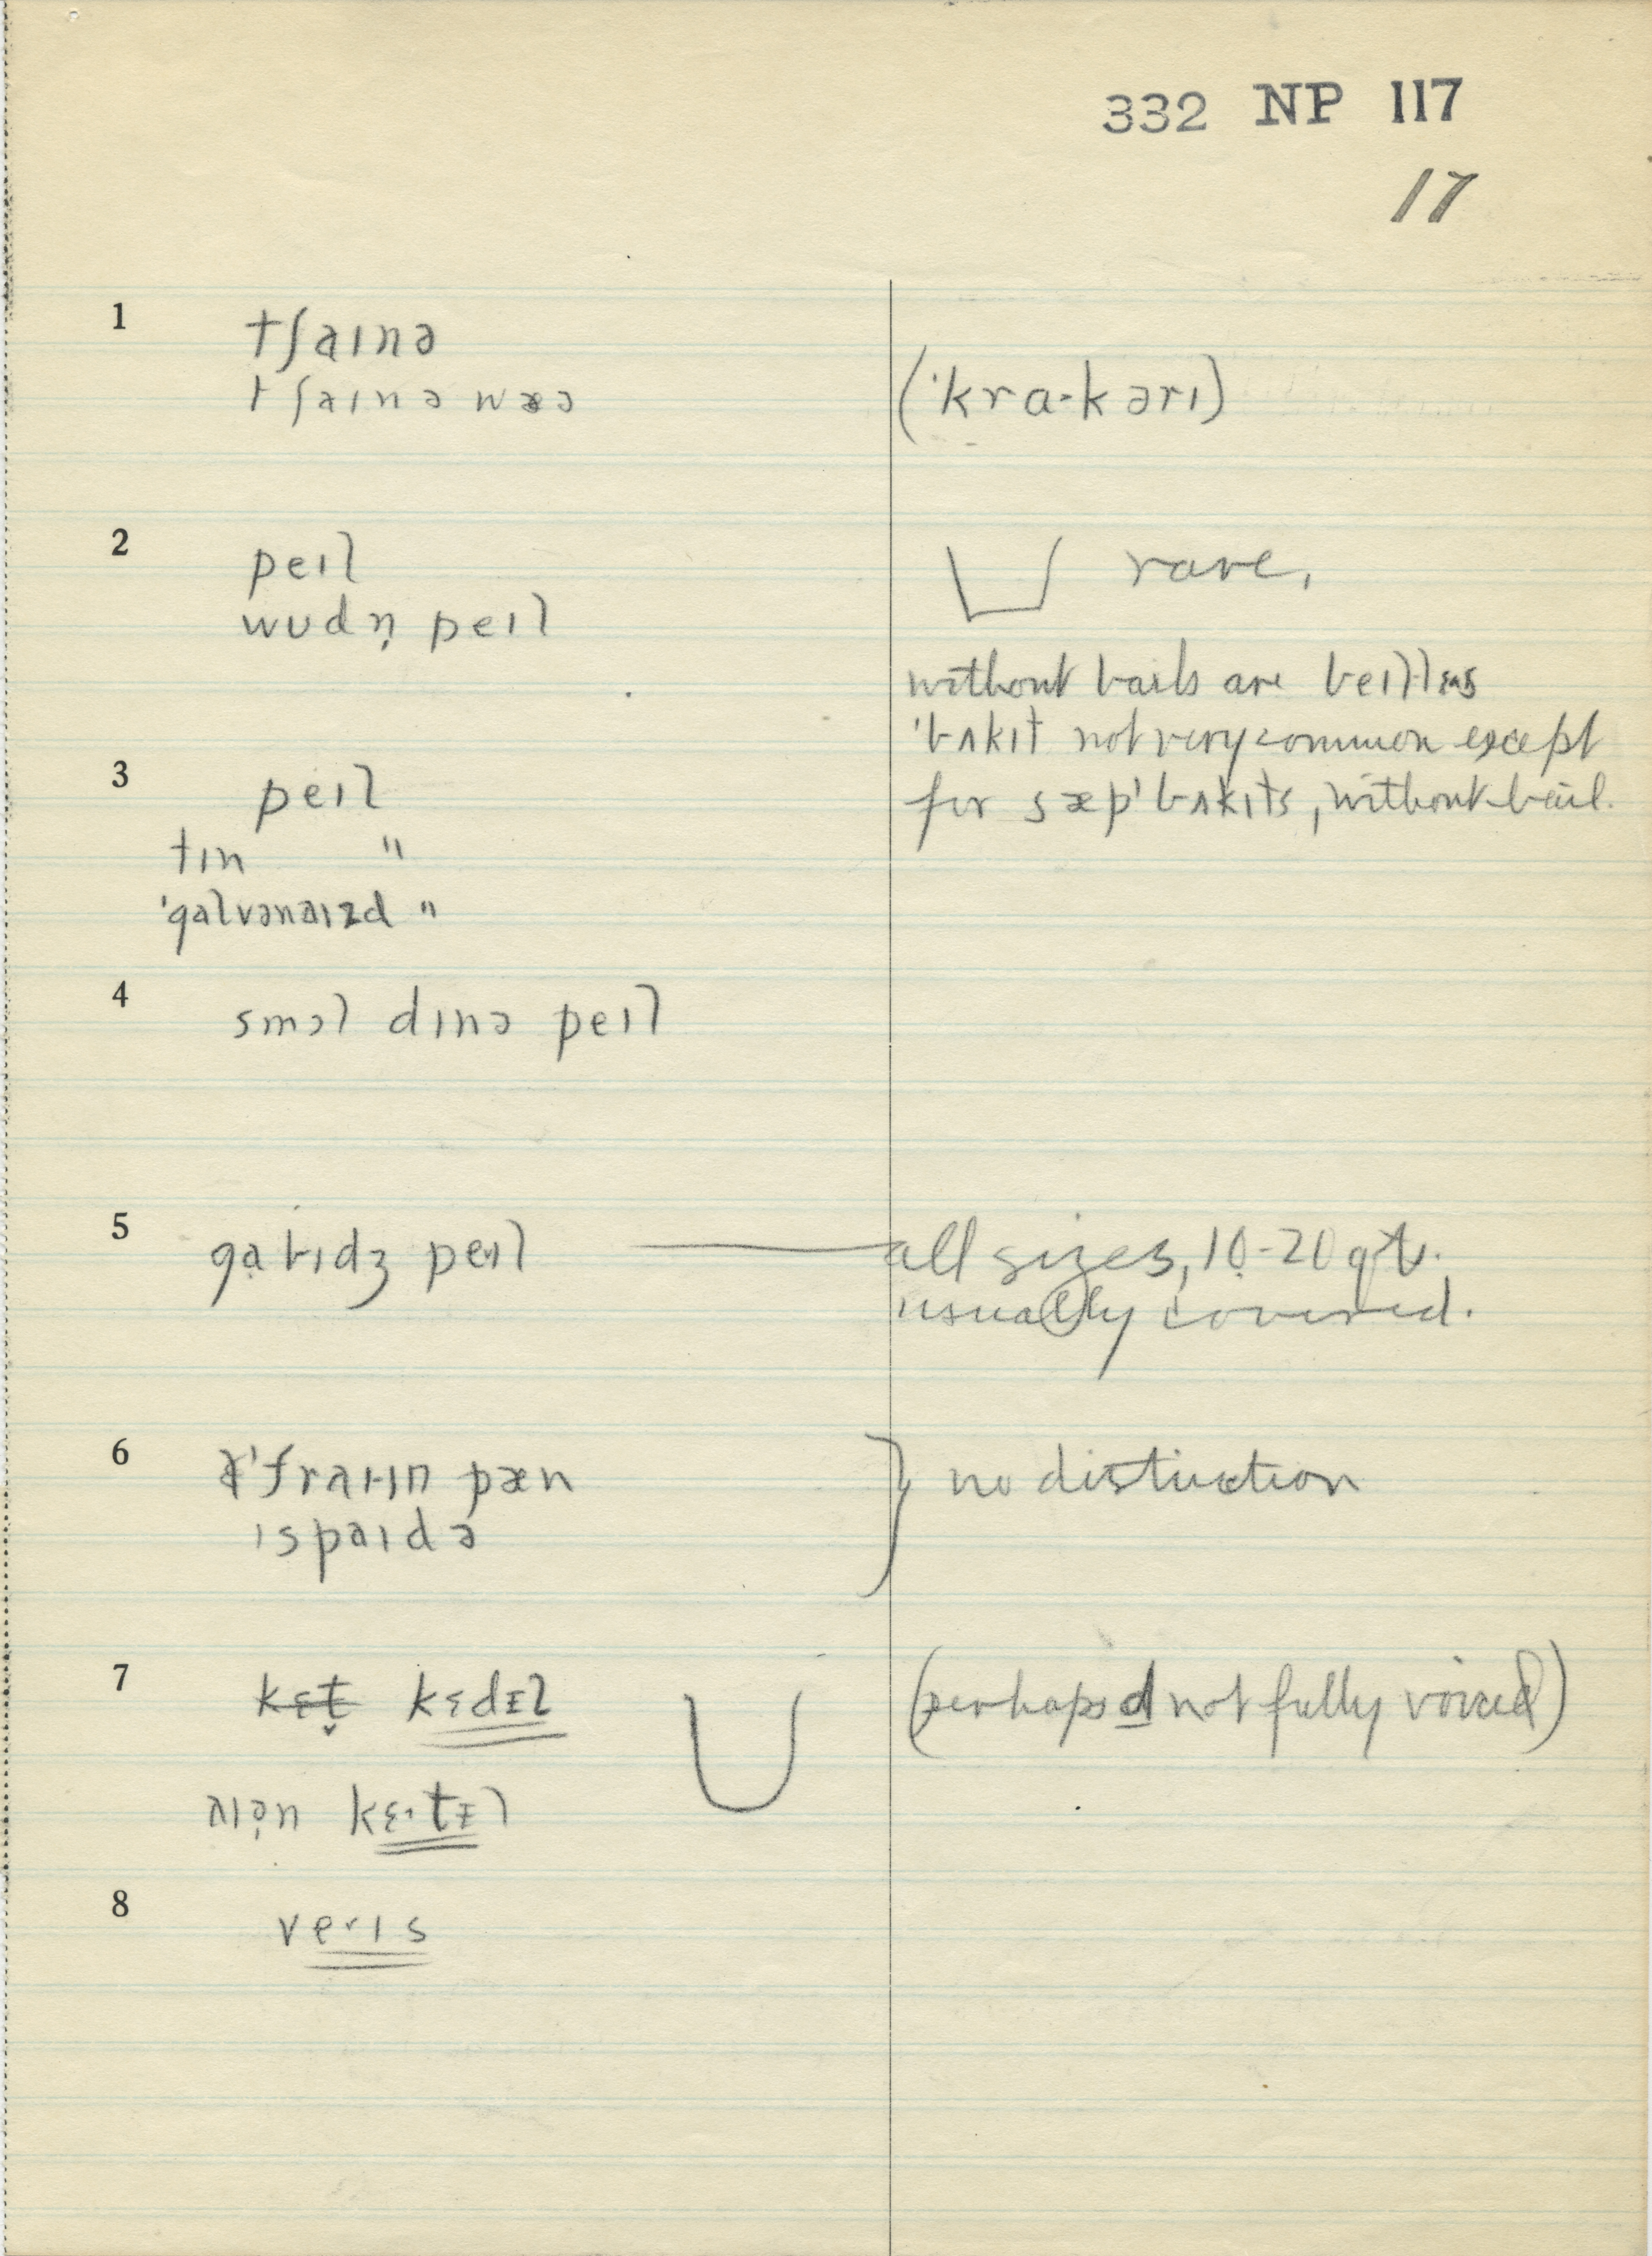 332 NP 117
17
1
tʃaɪnə
tʃaɪnə wæə
(ˈkra·kərɪ)
2
peɪl
rare,
wʊdn̩ peɪl
without bails are
ˈbʌkɪt not very common except
3
peɪl
for sæpˈbʌkɪts, without bail.
tɪn "
ˈgalvənaɪzd "
4
smɔl dɪnə peɪl
5
gạbɪdʒ peɪl
all sizes, 10-20 qt.
usually covered.
6
fraɪɪn pæn
no distinction
ɪspaɪdə
7
kɛt̬ kɛdɪl
(perhaps d not fully voiced)
aɪən kɛ·tɪl
8
verɪs